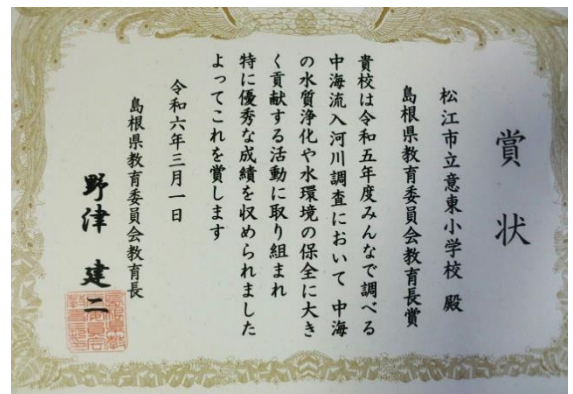 賞状
松江市立意東小学校 殿
島根県教育委員会教育長賞
貴校は令和五年度みんなで調べる
中海流入河川調査において 中海
の水質浄化や水環境の保全に大き
く貢献する活動に取り組まれ
特に優秀な成績を収められました
よってこれを賞します
令和六年三月一日
島根県教育委員会教育長
野津 建二